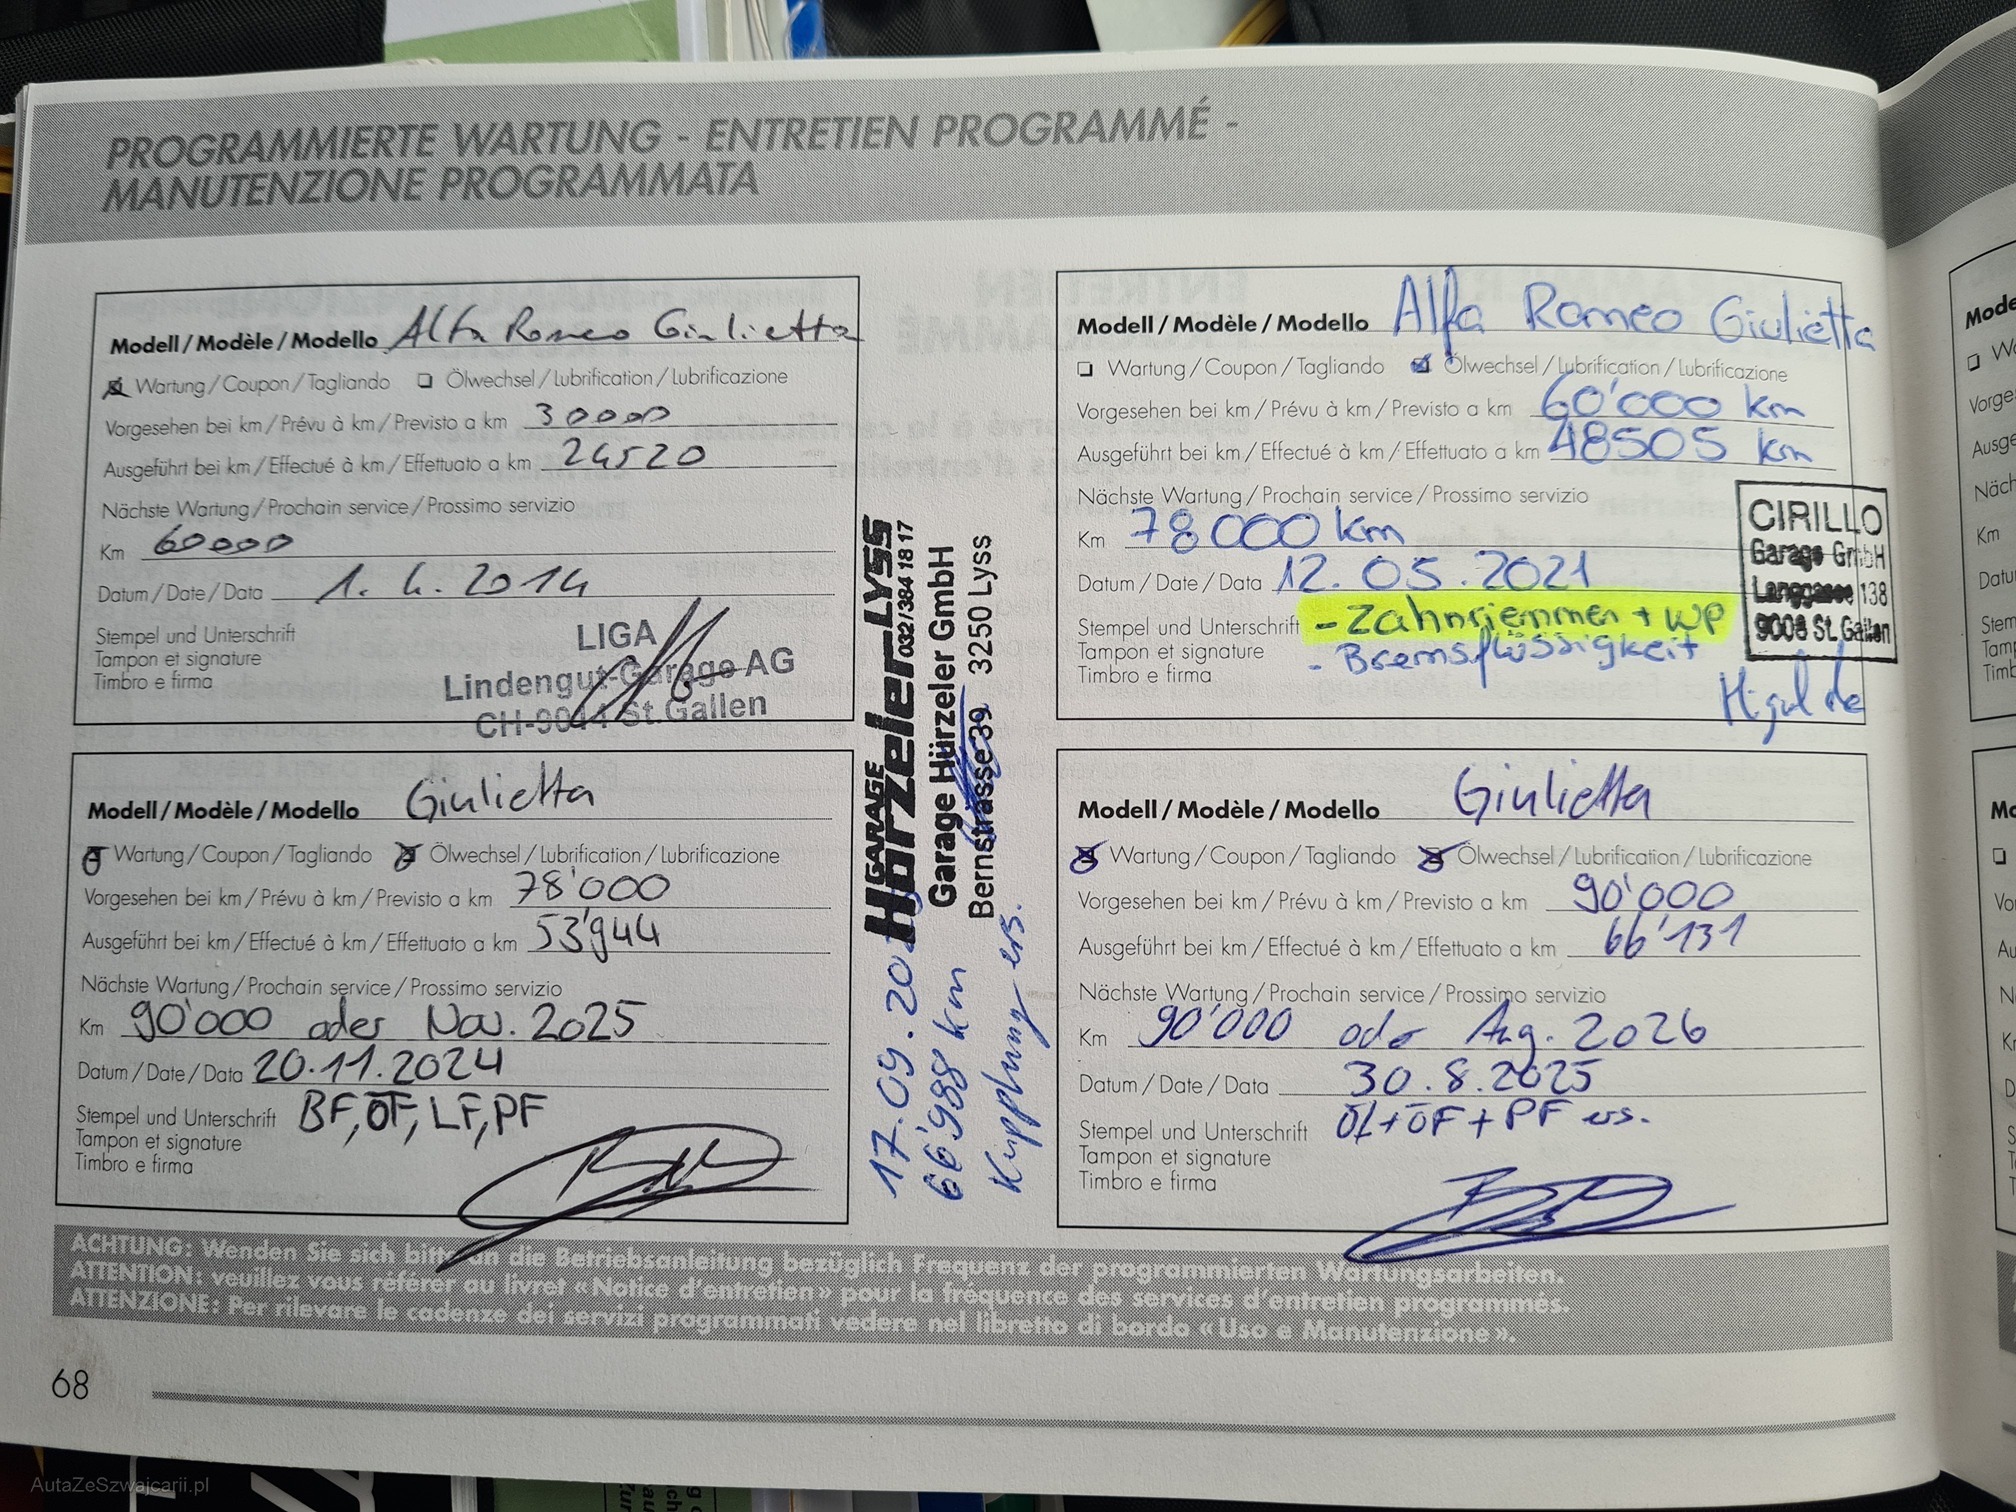 PROGRAMMIERTE WARTUNG - ENTRETIEN PROGRAMMÉ -
MANUTENZIONE PROGRAMMATA
Modell / Modèle / Modello Alfa Romeo Giulietta
Wartung / Coupon / Tagliando Ölwechsel / Lubrification / Lubrificazione
Vorgesehen bei km / Prévu à km / Previsto a km 30000
Ausgeführt bei km / Effectué à km / Effettuato a km 24520
Nächste Wartung / Prochain service / Prossimo servizio
Km 60000
Datum / Date / Data 1. 4. 2014
Stempel und Unterschrift
Tampon et signature
Timbro e firma
LIGA
Lindengut-Garage AG
CH-9011 St.Gallen
Modell / Modèle / Modello Alfa Romeo Giulietta
Wartung / Coupon / Tagliando Ölwechsel / Lubrification / Lubrificazione
Vorgesehen bei km / Prévu à km / Previsto a km 60'000 km
Ausgeführt bei km / Effectué à km / Effettuato a km 48505 km
Nächste Wartung / Prochain service / Prossimo servizio
Km 78000 km
Datum / Date / Data 12.05.2021
Stempel und Unterschrift - Zahnriemmen + WP
Tampon et signature - Bremsflüssigkeit
Timbro e firma
CIRILLO
Garage GmbH
Langgasse 138
9008 St.Gallen
Modell / Modèle / Modello Giulietta
Wartung / Coupon / Tagliando Ölwechsel / Lubrification / Lubrificazione
Vorgesehen bei km / Prévu à km / Previsto a km 78'000
Ausgeführt bei km / Effectué à km / Effettuato a km 53'944
Nächste Wartung / Prochain service / Prossimo servizio
Km 90'000 oder Nov. 2025
Datum / Date / Data 20.11.2024
Stempel und Unterschrift BF, ÖF, LF, PF
Tampon et signature
Timbro e firma
GARAGE
Hürzeler-LYSS
032/384 18 17
Garage Hürzeler GmbH
Bernstrasse 39 3250 Lyss
17.09.20
66'988 km
Kupplung ers.
Modell / Modèle / Modello Giulietta
Wartung / Coupon / Tagliando Ölwechsel / Lubrification / Lubrificazione
Vorgesehen bei km / Prévu à km / Previsto a km 90'000
Ausgeführt bei km / Effectué à km / Effettuato a km 66'131
Nächste Wartung / Prochain service / Prossimo servizio
Km 90'000 oder Aug. 2026
Datum / Date / Data 30.8.2025
Stempel und Unterschrift Öl+ÖF + PF ers.
Tampon et signature
Timbro e firma
ACHTUNG: Wenden Sie sich bitte an die Betriebsanleitung bezüglich Frequenz der programmierten Wartungsarbeiten.
ATTENTION: veuillez vous référer au livret «Notice d'entretien» pour la fréquence des services d'entretien programmés.
ATTENZIONE: Per rilevare le cadenze dei servizi programmati vedere nel libretto di bordo «Uso e Manutenzione».
68
AutaZeSzwajcarii.pl